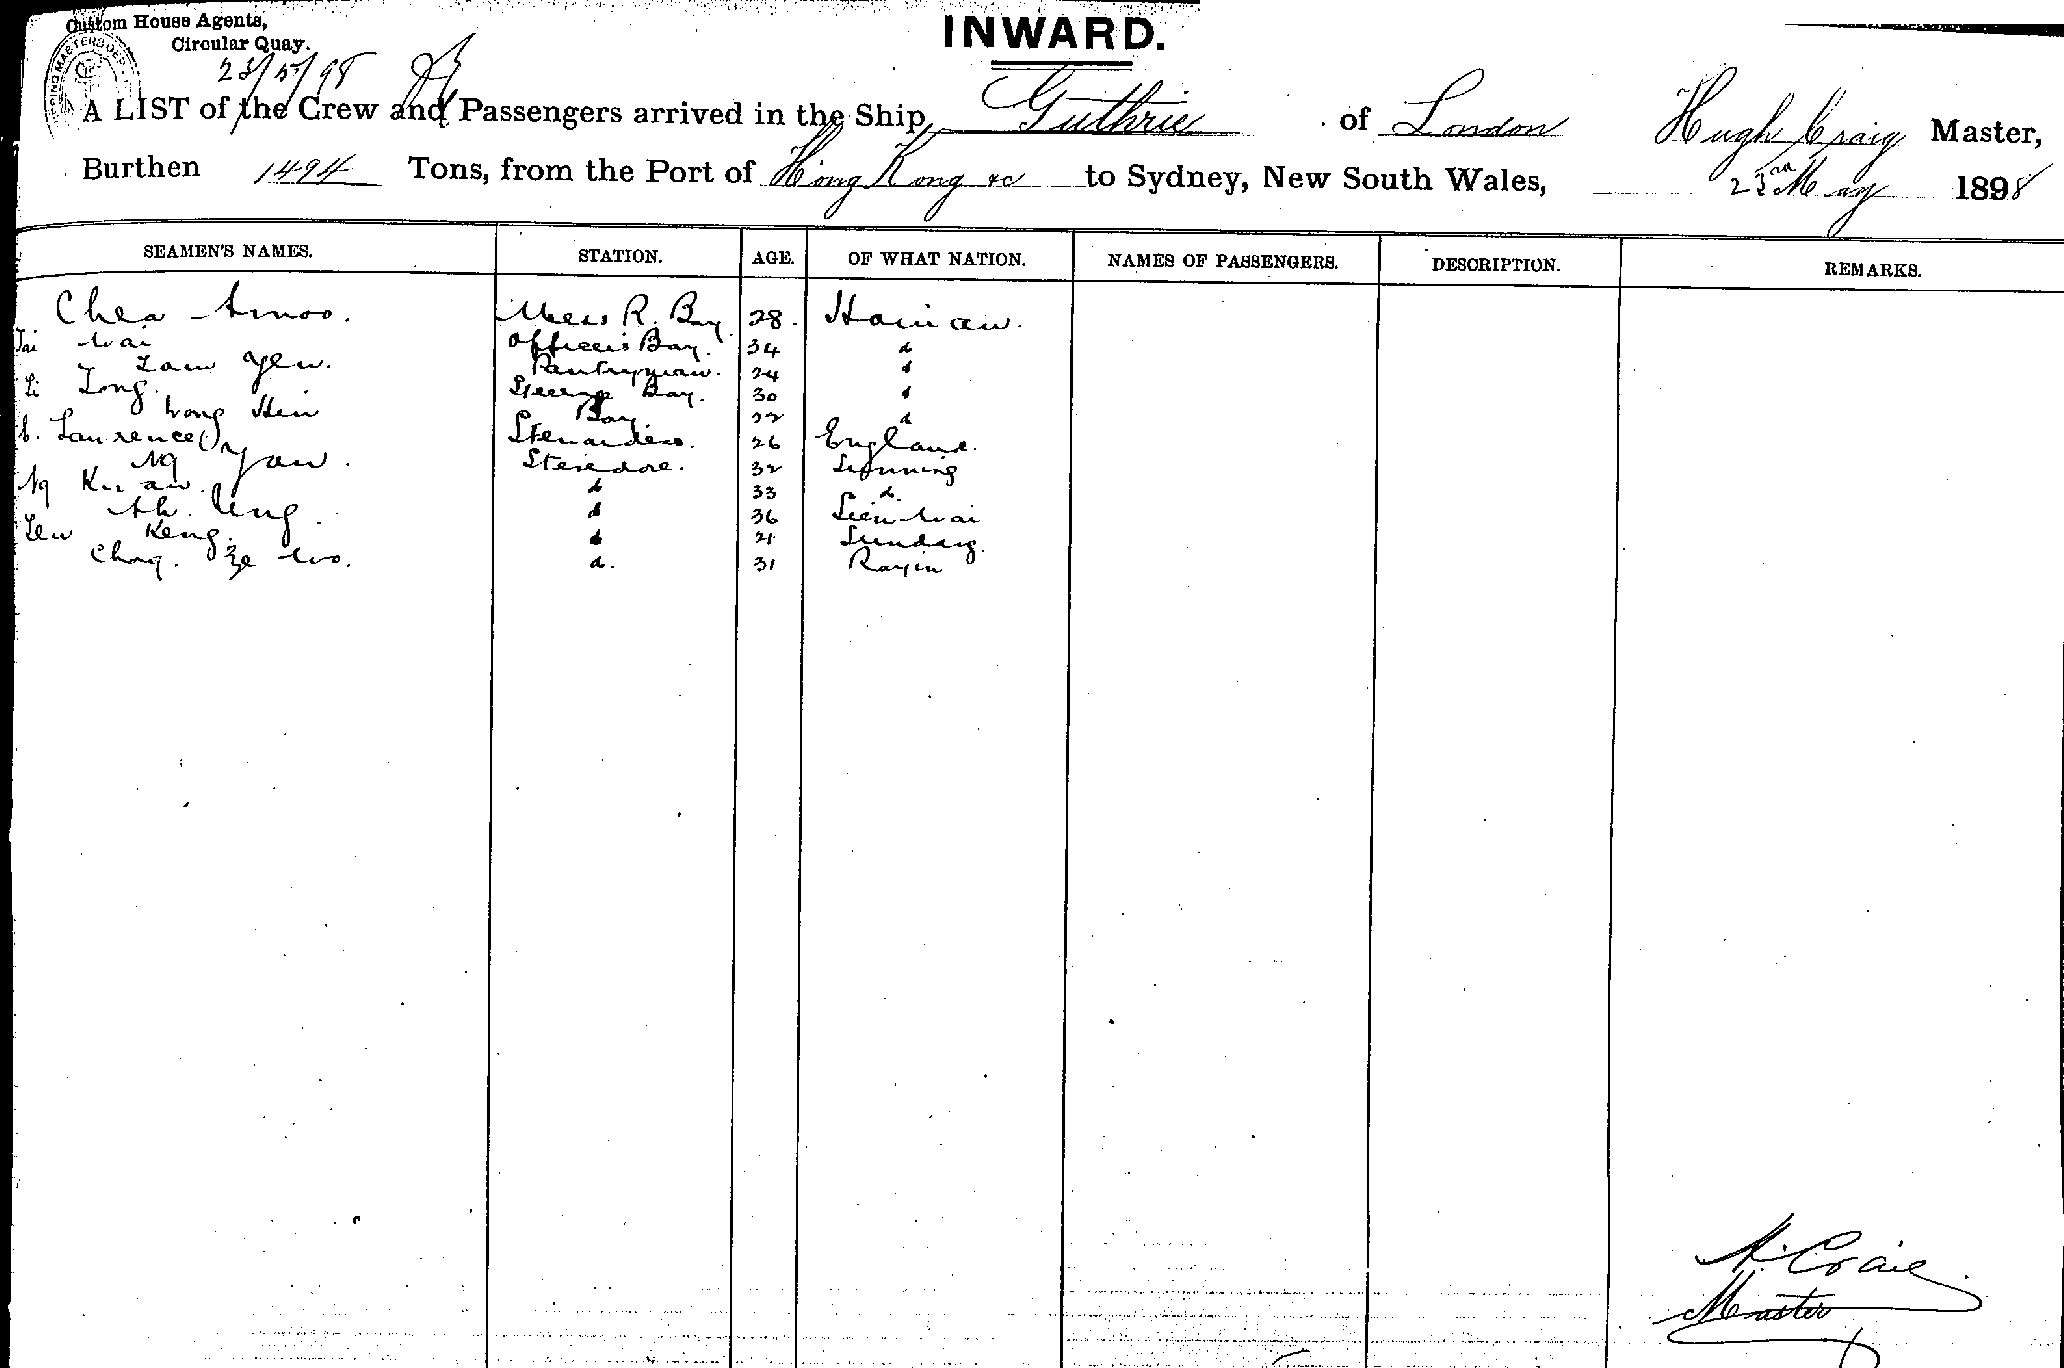 Custom House Agents,
Circular Quay.
INWARD.
23/5/98
A LIST of the Crew and Passengers arrived in the Ship Guthrie of London Hugh Craig Master,
Burthen 1494 Tons, from the Port of Hong Kong &c to Sydney, New South Wales, 23rd May 1898
SEAMEN'S NAMES. STATION. AGE. OF WHAT NATION. NAMES OF PASSENGERS. DESCRIPTION. REMARKS.
Chea Amoo. Mess R. Boy 28. Hainan.
Tai Wai Officers Boy. 34 d
Lam Yew. Pantryman. 24 d
Li Tong. Boy. 30 d
Wong Hin Boy 22 d
Laurence Stewardess. 26 England.
Ng Yow. Stevedore. 32 Sunning
Ng Kwaw. d 33 d.
Ah. Leng. d 36 Wai
Lew Keng. d 21
Chong. Ze Woo. d. 31
H. Craig
Master